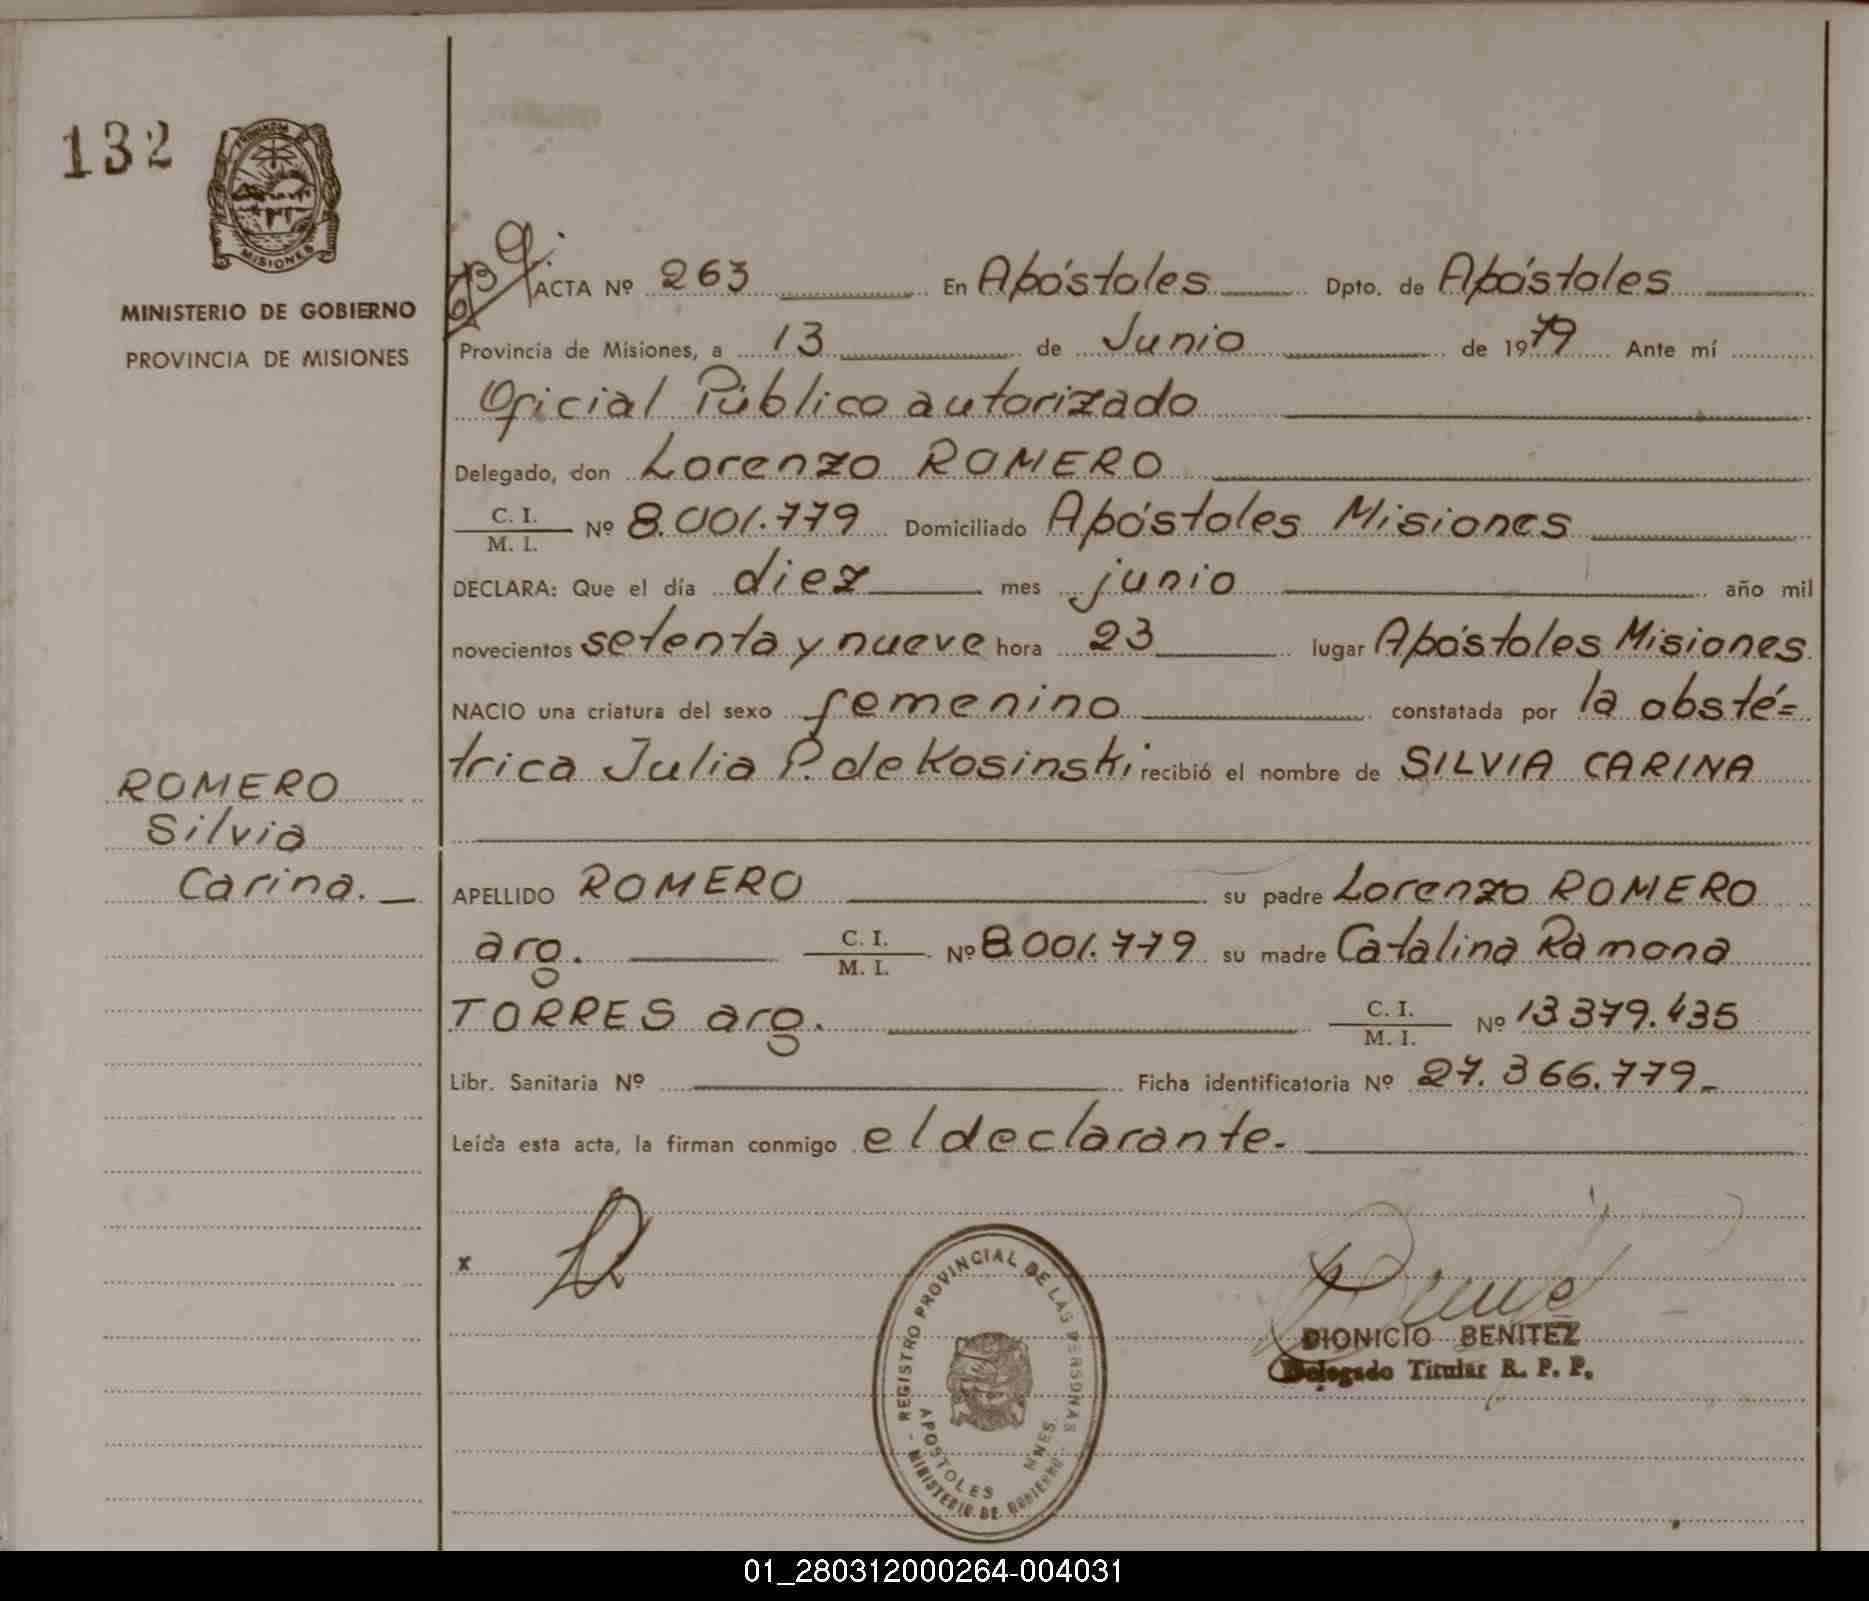 132
PROVINCIA DE
MISIONES
MINISTERIO DE GOBIERNO
PROVINCIA DE MISIONES
ROMERO
Silvia
Carina.
ACTA Nº 263 En Apóstoles Dpto. de Apóstoles
Provincia de Misiones, a 13 de Junio de 1979 Ante mí
Oficial Público autorizado
Delegado, don Lorenzo ROMERO
C. I.
M. I. Nº 8.001.779 Domiciliado Apóstoles Misiones
DECLARA: Que el día diez mes junio año mil
novecientos setenta y nueve hora 23 lugar Apóstoles Misiones.
NACIO una criatura del sexo femenino constatada por la obsté=
trica Julia P. de Kosinski recibió el nombre de SILVIA CARINA
APELLIDO ROMERO su padre Lorenzo ROMERO
arg. C. I.
M. I. Nº 8.001.779 su madre Catalina Ramona
TORRES arg. C. I.
M. I. Nº 13.379.435
Libr. Sanitaria Nº Ficha identificatoria Nº 27.366.779-
Leída esta acta, la firman conmigo el declarante.-
x
REGISTRO PROVINCIAL DE LAS PERSONAS
APOSTOLES MNES.
- MINISTERIO DE GOBIERNO -
DIONICIO BENITEZ
Delegado Titular R. P. P.
01_280312000264-004031